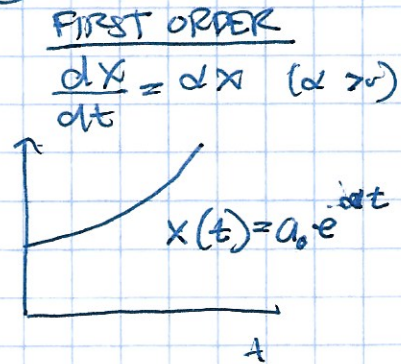 FIRST ORDER
dx/dt = αx (α >0)
x(t)=a₀e^αt
t